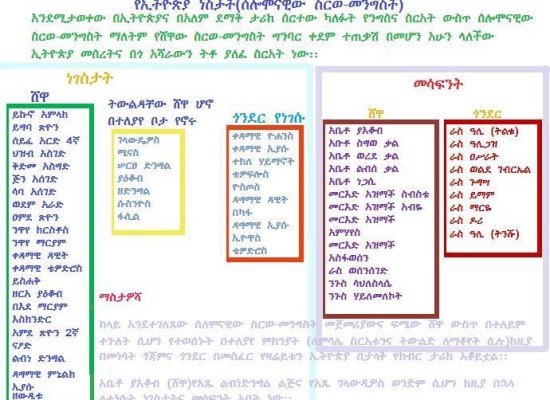 የኢትዮጵያ ነገስታት(ሰሎሞናዊው ስርወ-መንግስት)
እንደሚታወቀው በኢትዮጵያና በአለም ደማት ታሪክ ሰርተው ካለፉት የንግስና ስርአት ውስጥ ሰሎሞናዊው
ስርወ-መንግስት ማለትም የሸዋው ስርወ-መንግስት ግንባር ቀደም ተጠቃሽ በመሆን አሁን ላለችው
ኢትዮጵያ መሰረትና በጎ አሻራውን ትቶ ያለፈ ስርአት ነው።
ነገስታት
ሸዋ
ይኩኖ አምላክ
ይግባ ጽዮን
ሰይፈ አርድ 4ኛ
ህዝብ አስገድ
ቅድመ አስግድ
ጅን አሰገድ
ሳባ አሰገድ
ወደም አራድ
ዐምደ ጽዮን
ንዋየ ከርስቶስ
ንዋየ ማርያም
ቀዳማዊ ዳዊት
ቀዳማዊ ቴዎድሮስ
ይስሐቅ
ዘርአ ያዕቆብ
በእደ ማርያም
እስክንድር
አምደ ጽዮን 2ኛ
ናዖድ
ልብነ ድንግል
ዳግማዊ ምኒልክ
ኢያሱ
ዘውዲቱ
ትውልዳቸው ሸዋ ሆኖ
በተለያየ ቦታ የኖሩ
ገላውዴዎስ
ሚናስ
ሠርፀ ድንግል
ያዕቆብ
ዘድንግል
ሱስንዮስ
ፋሲል
ጎንደር የነገሱ
ቀዳማዊ ዮሐንስ
ቀዳማዊ ኢያሱ
ተክለ ሃይማኖት
ቴዎፍሎስ
ዮስጦስ
ዳግማዊ ዳዊት
በካፋ
ዳግማዊ ኢያሱ
ኢዮዋስ
ቴዎድሮስ
መሳፍንት
ሸዋ
አቤቶ ያእቆብ
አቦቶ ስግወ ቃል
አቦቶ ወረደ ቃል
አቦቶ ልብሰ ቃል
አቦቶ ነጋሲ
መርእድ አዝማች ስብስቴ
መርእድ አዝማች አብዬ
መርእድ አዝማች
አምሃየስ
መርእድ አዝማች
አስፋወሰን
ራስ ወሰንሰገድ
ንጉስ ሳህለስላሴ
ንጉስ ሃይለመለኮት
ጎንደር
ራስ ዓሊ (ትልቁ)
ራስ ዓሊጋዝ
ራስ ዐሥራት
ራስ ወልደ ገብርኤል
ራስ ጉግሣ
ራስ ይማም
ራስ ማርዬ
ራስ ዶሪ
ራስ ዓሊ (ትንሹ)
ማስታዎሻ
ከላይ እንደተገለጸው ሰለሞናዊው ስርወ-መንግስት መጀመሪያውና ፍሜው ሸዋ ውስጥ በተለይም
ተጉለት ሲሆን የተወሰኑት በተለያየ ምክንያት (ለምሳሌ ስርአቱንና ትውልድ ለማቆየት ሲሉ)ከዚያ
በመነሳት ጎጃምና ጎንደር በመስፈር የዛሬዪቱን ኢትዮጵያ በታላቅ የክብር ታሪክ አቆይቷል።
አቤቶ ያእቆብ (ሸዋ)የአጼ ልብነድንግል ልጅና የአጼ ገላውዲዎስ ወንድም ሲሆን ከዚያ በኋላ